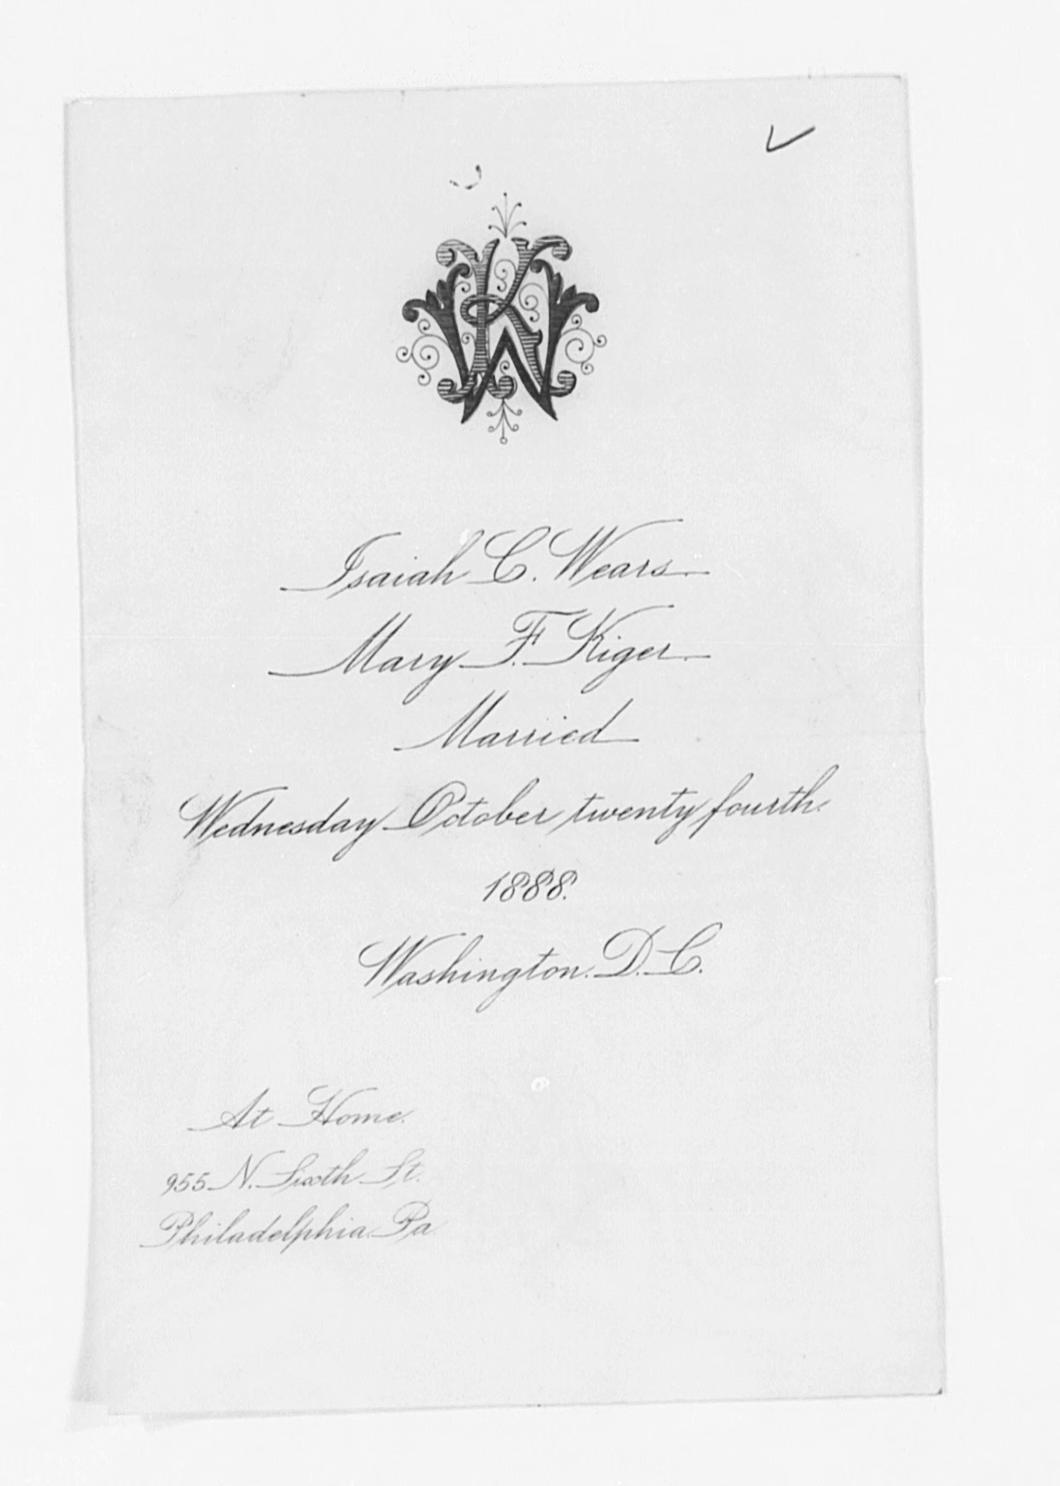 KW
Isaiah C. Wears
Mary F. Kiger
Married
Wednesday October twenty fourth.
1888.
Washington. D. C.
At Home.
955 N. Sixth St.
Philadelphia. Pa